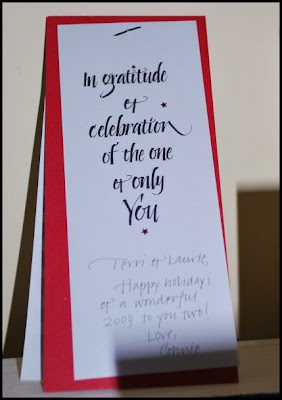 In gratitude
&
celebration
of the one
& only
You
Terri & Laurie,
Happy holidays
& a wonderful
2009 to you two!
Love,
Connie